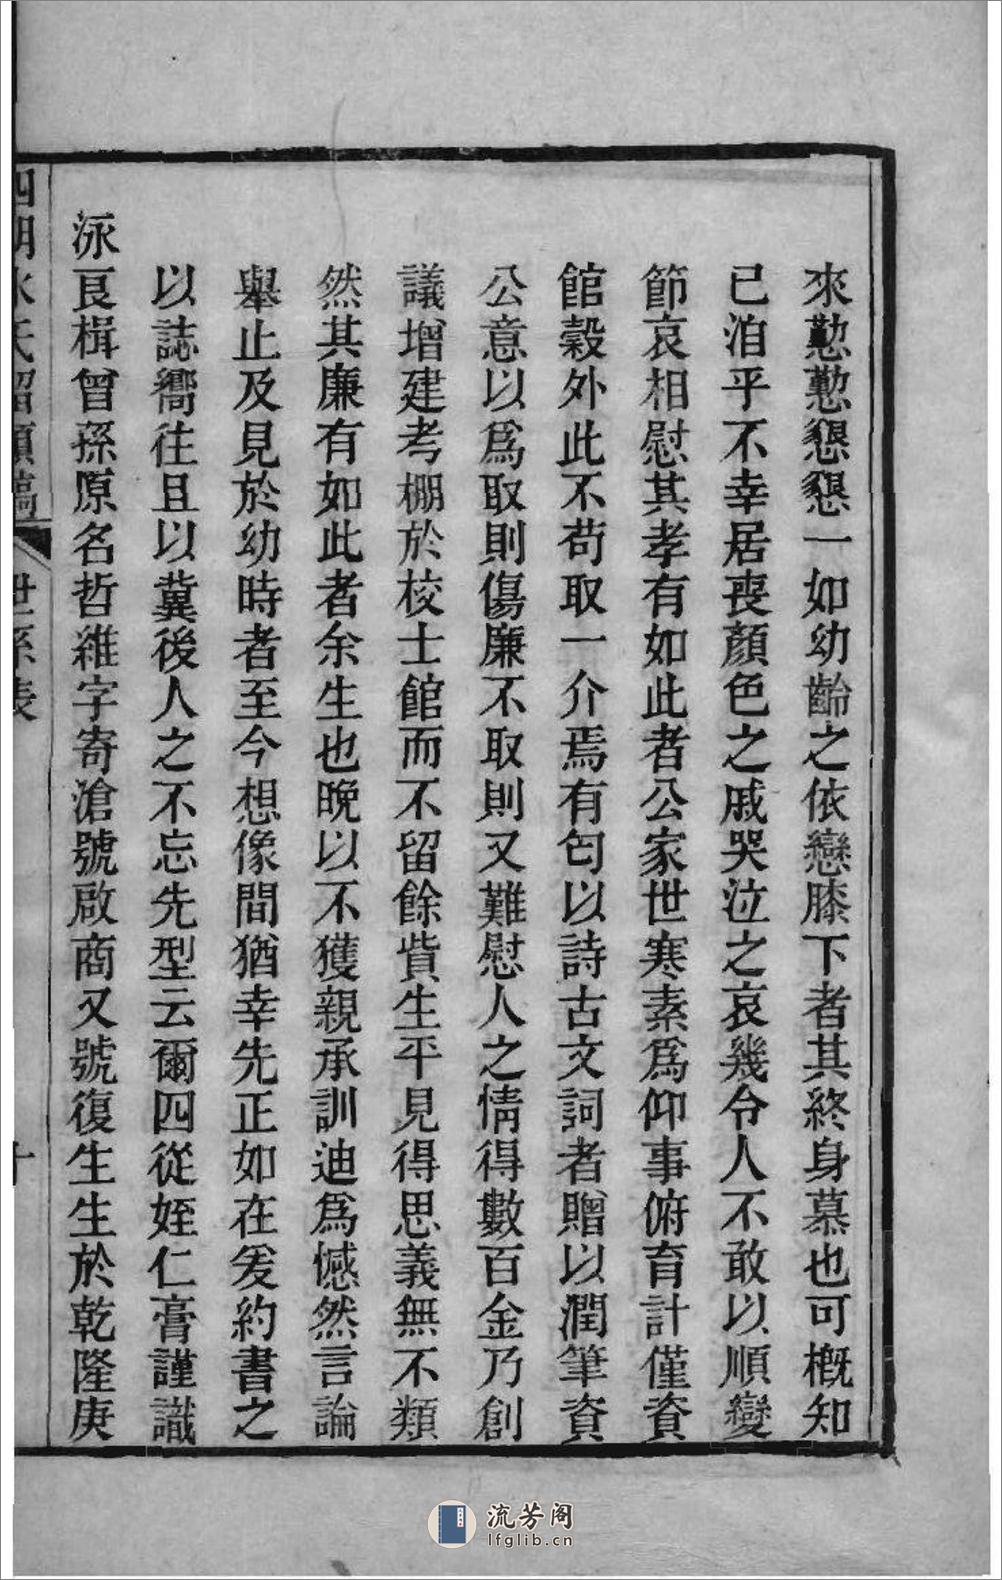 來懃懃懇懇一如幼齡之依戀膝下者其終身慕也可概知
已洎乎不幸居喪顏色之戚哭泣之哀幾令人不敢以順變
節哀相慰其孝有如此者公家世寒素爲仰事俯育計僅資
館穀外此不苟取一介焉有匄以詩古文詞者贈以潤筆資
公意以爲取則傷廉不取則又難慰人之情得數百金乃創
議增建考棚於校士館而不留餘貲生平見得思義無不類
然其廉有如此者余生也晚以不獲親承訓迪爲憾然言論
舉止及見於幼時者至今想像間猶幸先正如在爰約書之
以誌嚮往且以冀後人之不忘先型云爾四從姪仁膏謹識
泳良楫曾孫原名哲維字寄滄號啟商又號復生生於乾隆庚
四明水氏留碩稿
世系表
十
流芳阁
lfglib.cn